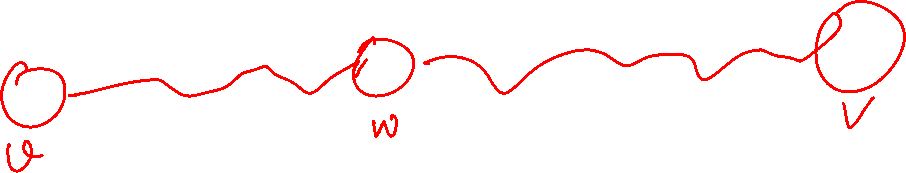 u w v